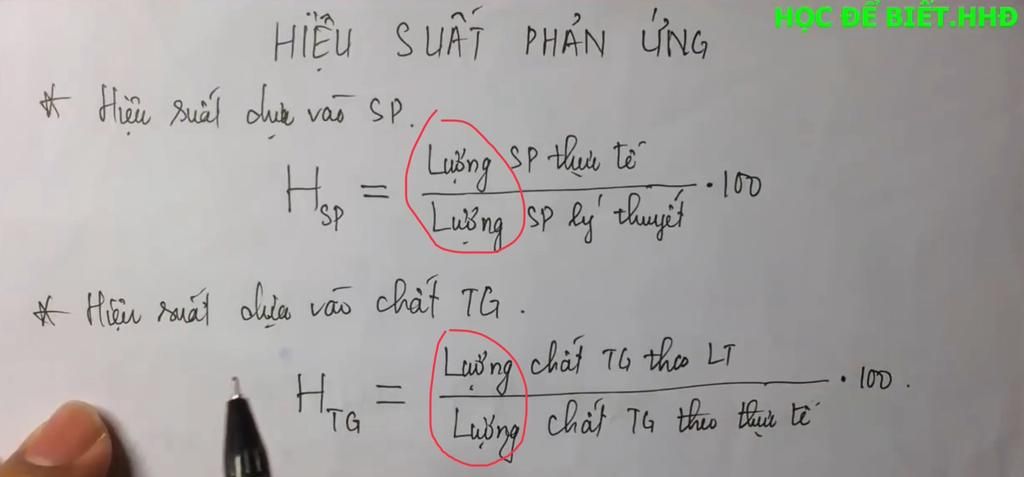 HỌC ĐỂ BIẾT.HHĐ
HIỆU SUẤT PHẢN ỨNG
* Hiệu suất dựa vào SP.
H_SP = Lượng SP thực tế / Lượng SP lý thuyết . 100
* Hiệu suất dựa vào chất TG.
H_TG = Lượng chất TG theo LT / Lượng chất TG theo thực tế . 100.